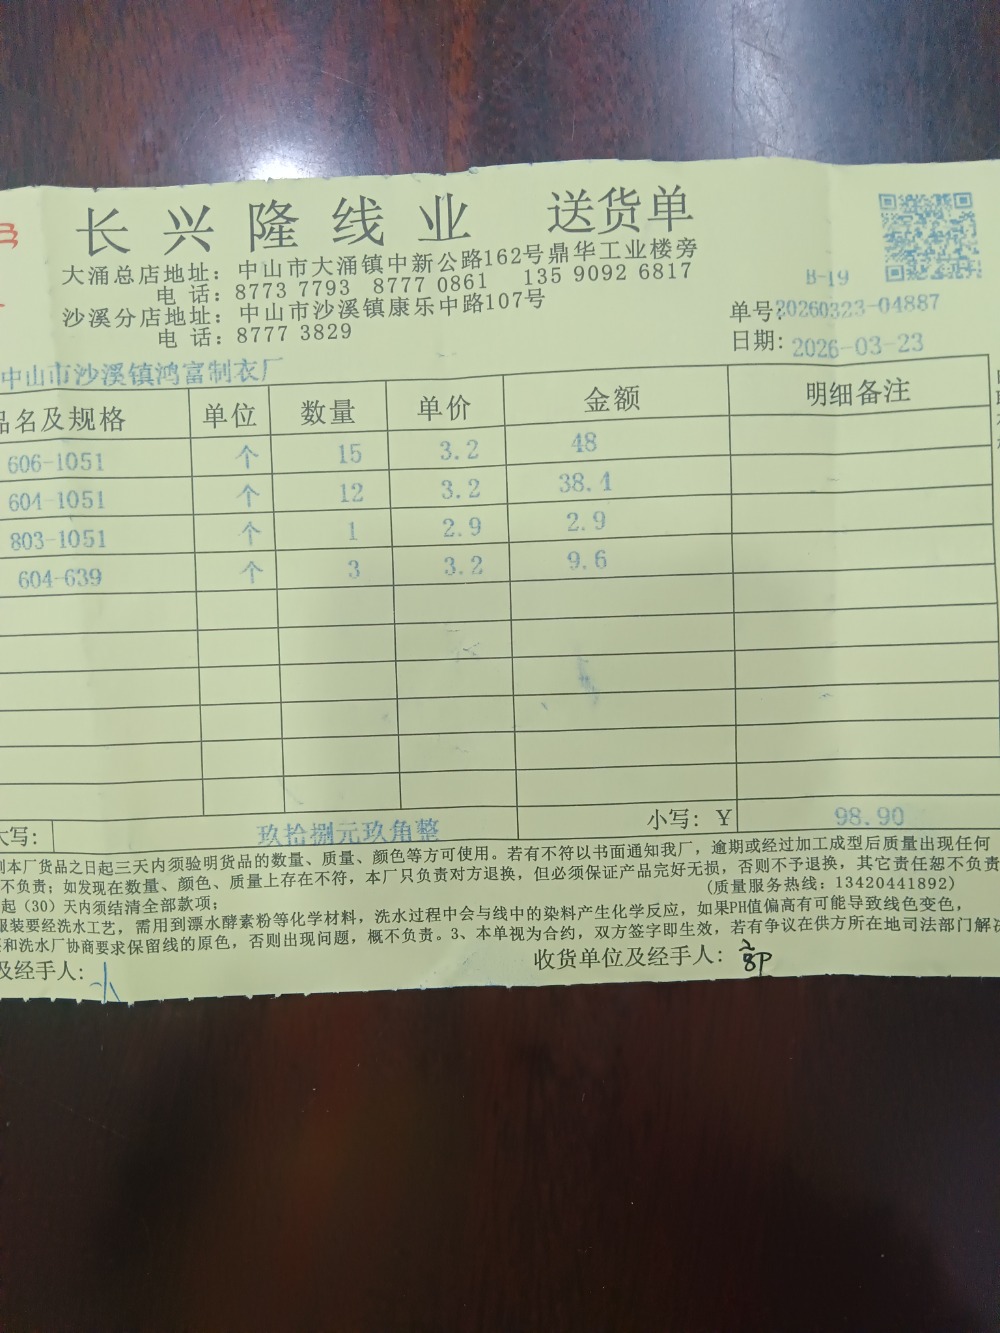 长兴隆线业 送货单
大涌总店地址：中山市大涌镇中新公路162号鼎华工业楼旁
电 话：8773 7793 8777 0861 135 9092 6817
沙溪分店地址：中山市沙溪镇康乐中路107号
电 话：8777 3829
B-19
单号：20260323-04887
日期：2026-03-23
中山市沙溪镇鸿富制衣厂
品名及规格 单位 数量 单价 金额 明细备注
606-1051 个 15 3.2 48
604-1051 个 12 3.2 38.4
803-1051 个 1 2.9 2.9
604-639 个 3 3.2 9.6
大写： 玖拾捌元玖角整 小写：￥ 98.90
到本厂货品之日起三天内须验明货品的数量、质量、颜色等方可使用。若有不符以书面通知我厂，逾期或经过加工成型后质量出现任何
不负责；如发现在数量、颜色、质量上存在不符，本厂只负责对方退换，但必须保证产品完好无损，否则不予退换，其它责任恕不负责
起（30）天内须结清全部款项； （质量服务热线：13420441892）
服装要经洗水工艺，需用到漂水酵素粉等化学材料，洗水过程中会与线中的染料产生化学反应，如果PH值偏高有可能导致线色变色，
和洗水厂协商要求保留线的原色，否则出现问题，概不负责。3、本单视为合约，双方签字即生效，若有争议在供方所在地司法部门解决
及经手人： 收货单位及经手人：